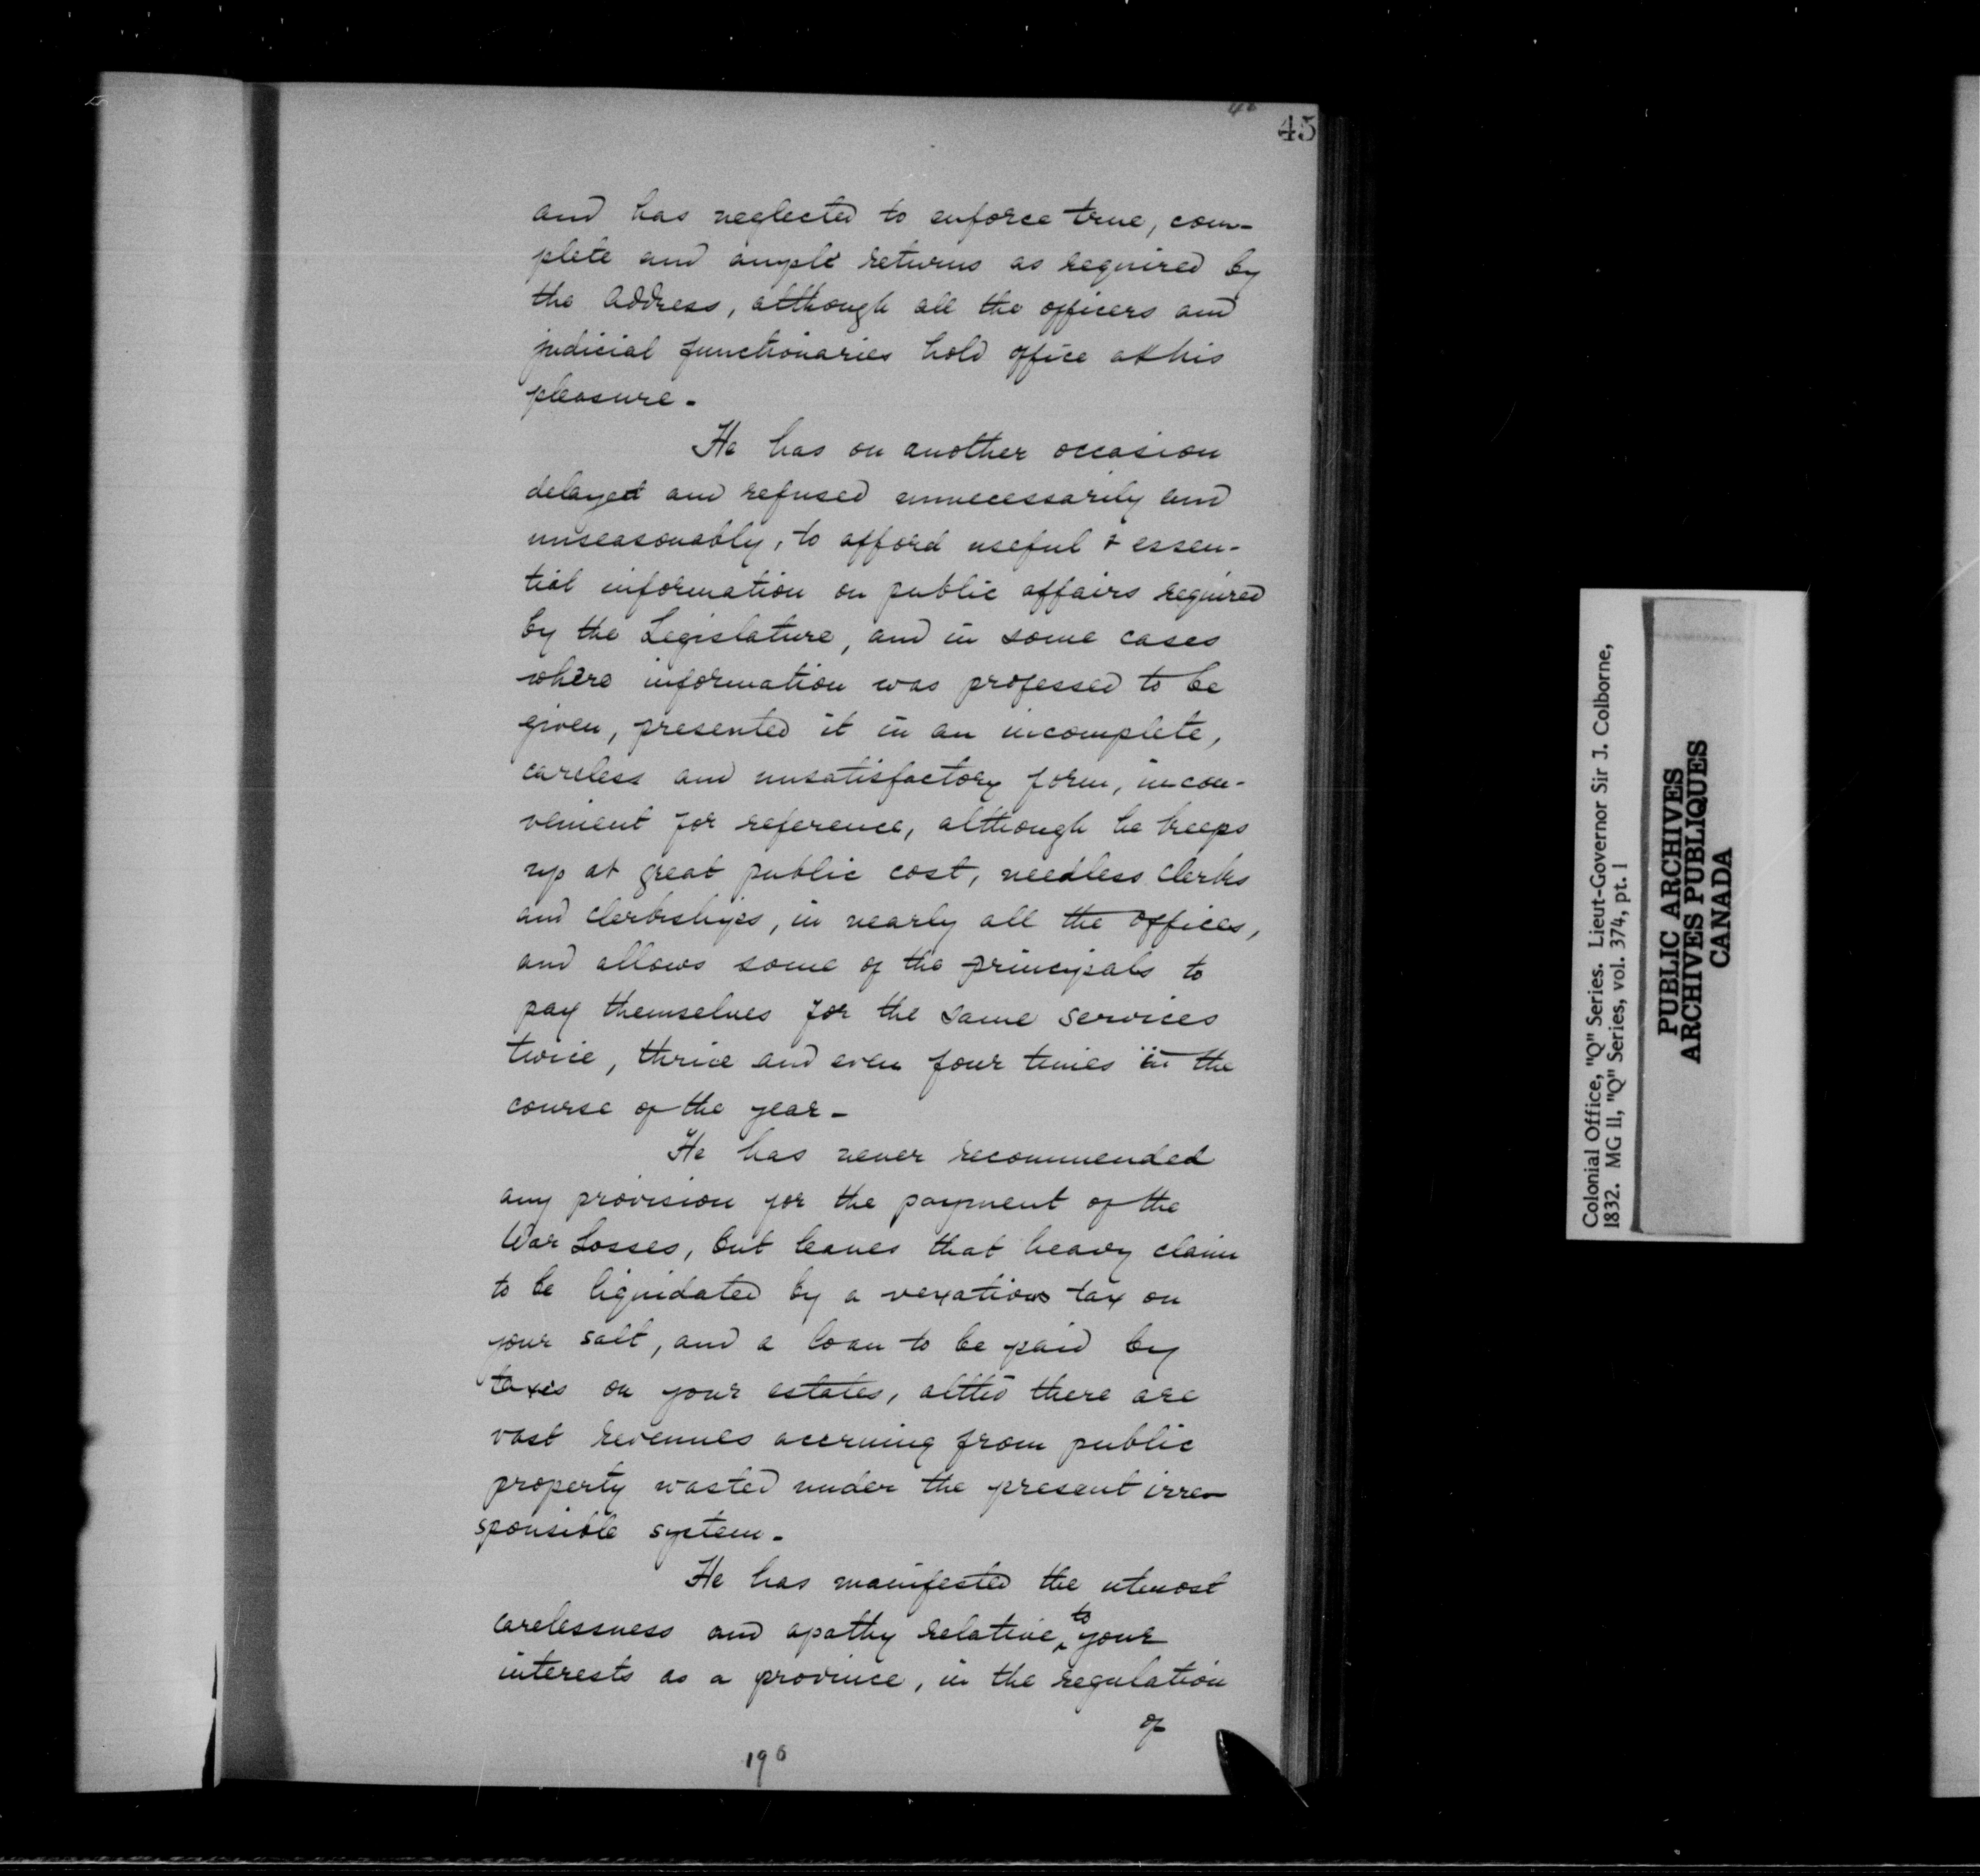 45
and has neglected to enforce true, com-
plete and ample returns as required by
the Address, although all the officers and
judicial functionaries hold office at his
pleasure -
He has on another occasion
delayed and refused unnecessarily and
unseasonably, to afford useful & essen-
tial information on public affairs required
by the Legislature, and in some cases
where information was professed to be
given, presented it in an incomplete,
careless and unsatisfactory form, incon-
venient for reference, although he keeps
up at great public cost, needless clerks
and clerkships, in nearly all the offices,
and allows some of the principals to
pay themselves for the same services
twice, thrice and even four times in the
course of the year -
He has never recommended
any provision for the payment of the
War Losses, but leaves that heavy claim
to be liquidated by a vexatious tax on
your salt, and a loan to be paid by
taxes on your estates, altho there are
vast revenues accruing from public
property wasted under the present irre-
sponsible system -
He has manifested the utmost
carelessness and apathy relative to your
interests as a province, in the regulation
of
196
Colonial Office, "Q" Series. Lieut-Governor Sir J. Colborne,
1832. MG 11, "Q" Series, vol. 374, pt. 1
PUBLIC ARCHIVES
ARCHIVES PUBLIQUES
CANADA